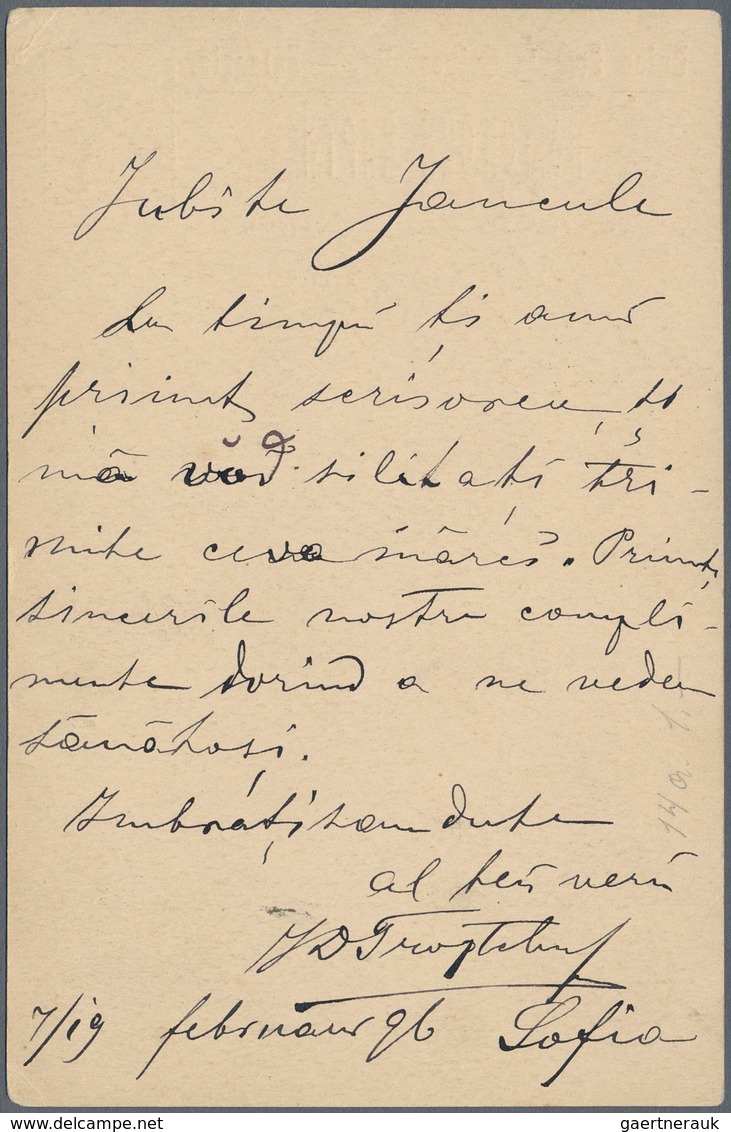 Iubite Jancule
La timpŭ ți amŭ
priimit scrisorea, și
mă văd silit ați tri-
mite ceva măres. Primit,
sincerile nostre compli-
mente dorind a ne vedea
sănătoși.
Imbrățișandute
al teŭ verŭ
7/19 februar 96 Sofia
14a. 1.-
gaertnerauk